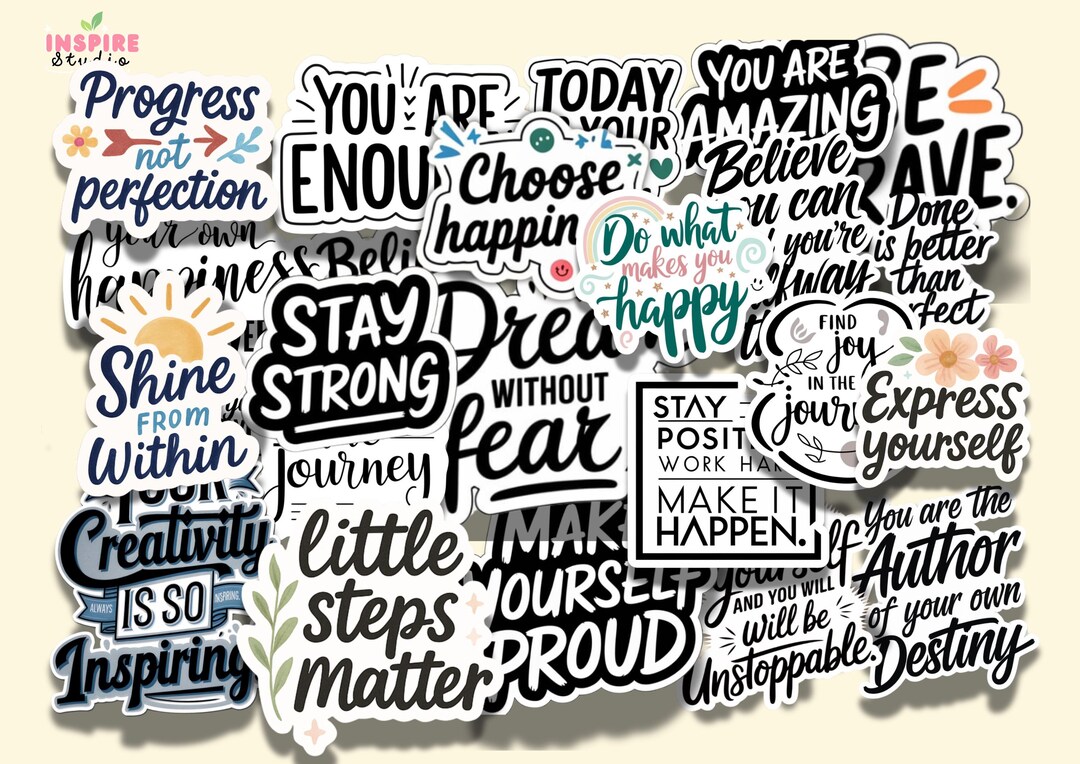 INSPIRE
Studio
Progress
not
perfection
YOU ARE
ENOU
TODAY
YOUR
YOU ARE
AMAZING
BE
RAVE.
Choose
happin
Do what
makes you
happy
Believe
u can
you're
lfway
Done
is better
than
rfect
your own
happiness
Beli
Shine
FROM
Within
STAY
STRONG
Drea
WITHOUT
fear
FIND
joy
IN THE
jour
Express
yourself
STAY
POSIT
WORK HAR
MAKE IT
HAPPEN.
Journey
YOUR
Creativity
ALWAYS
IS SO
INSPIRING.
Inspiring
little
steps
Matter
MAKE
YOURSELF
PROUD
yourself
AND YOU WILL
will be
Unstoppable.
You are the
Author
of your own
Destiny